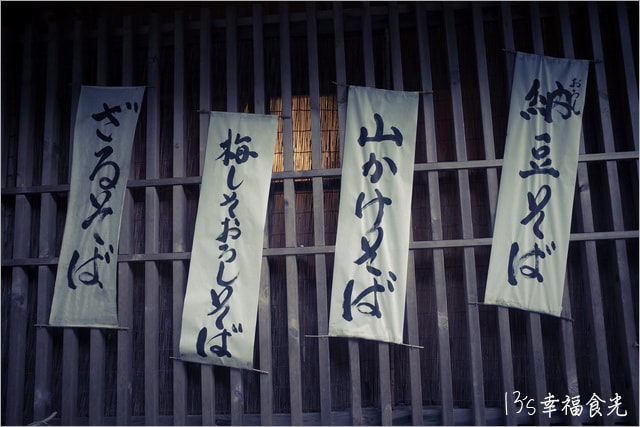 ざるそば
梅しそおろしそば
山かけそば
おろし
納豆そば
13's幸福食光